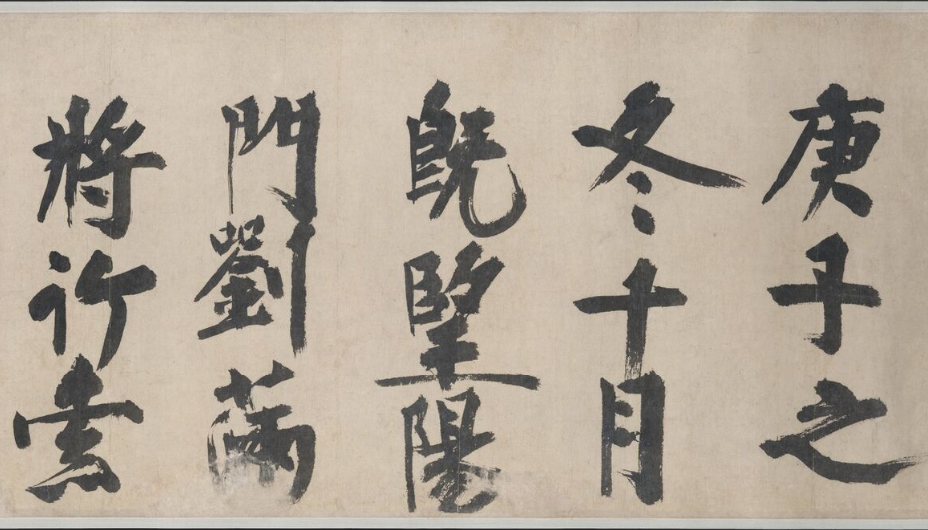 庚子之
冬十月
既望陽
門劉滿
將行索